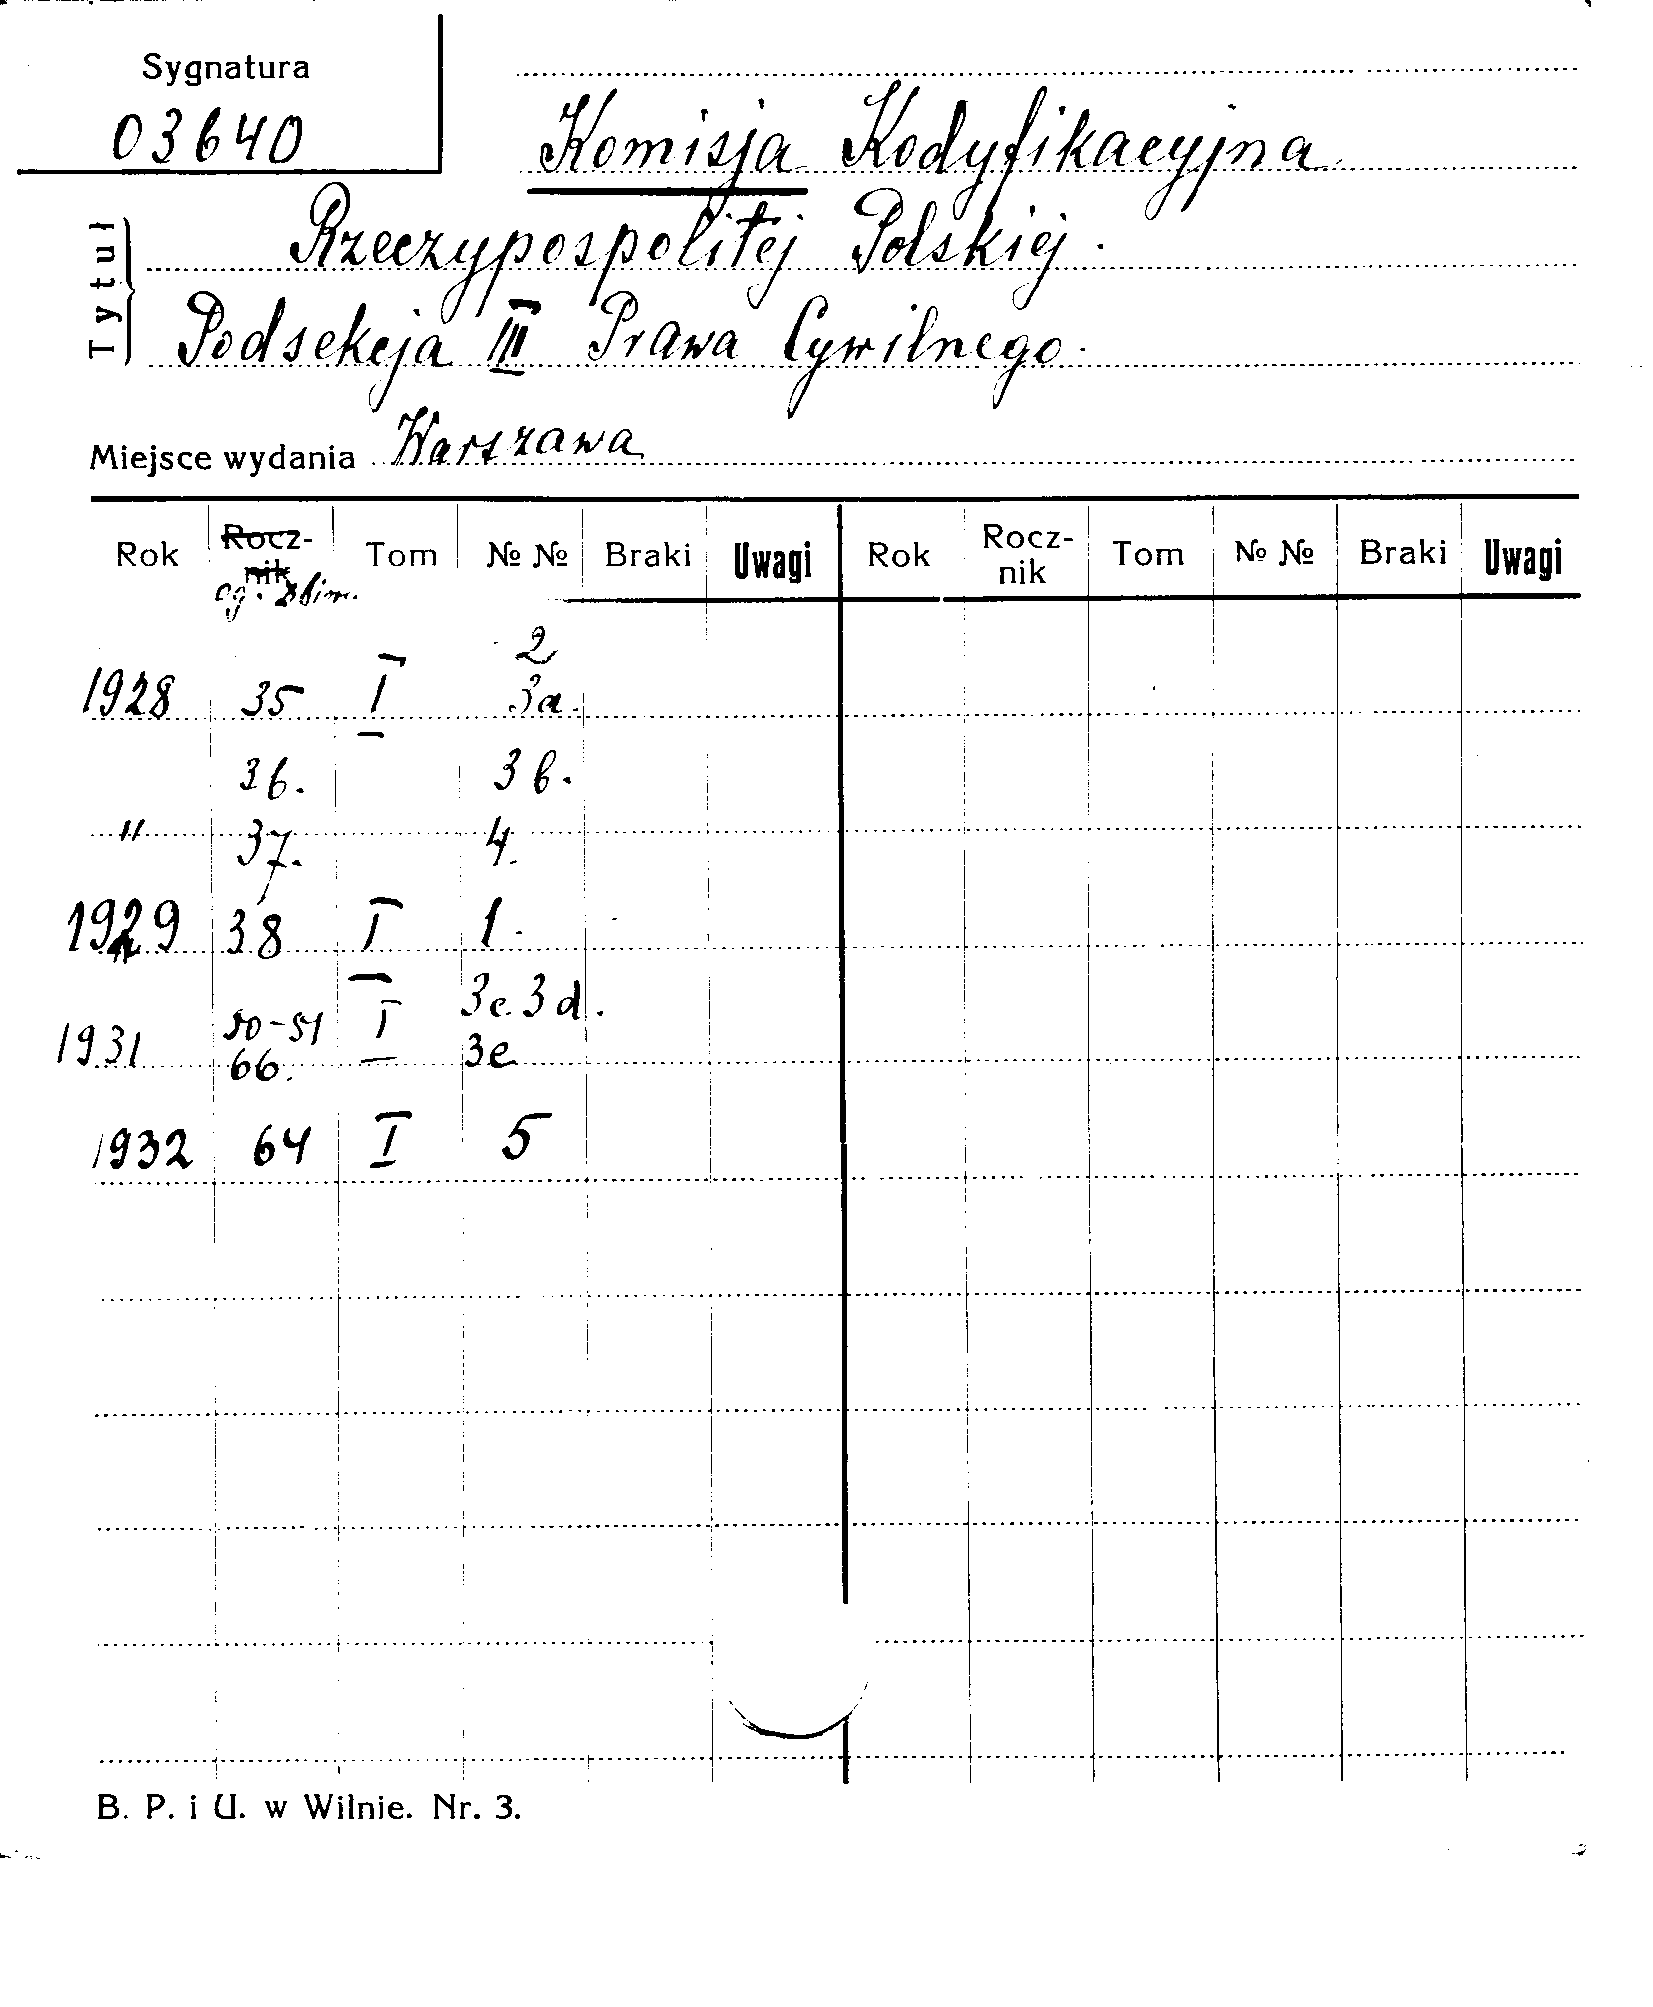 Sygnatura
03640
Komisja Kodyfikacyjna
Tytuł
Rzeczypospolitej Polskiej.
Podsekcja III Prawa Cywilnego.
Miejsce wydania Warszawa
Rok Rocz-nik Tom № № Braki Uwagi Rok Rocz-nik Tom № № Braki Uwagi
og. zbior.
2
1928 35 I 3a.
36. 3b.
" 37. 4.
1929 38 I 1.
3c. 3d.
1931 50-51 I
66. 3e
1932 64 I 5
B. P. i U. w Wilnie. Nr. 3.